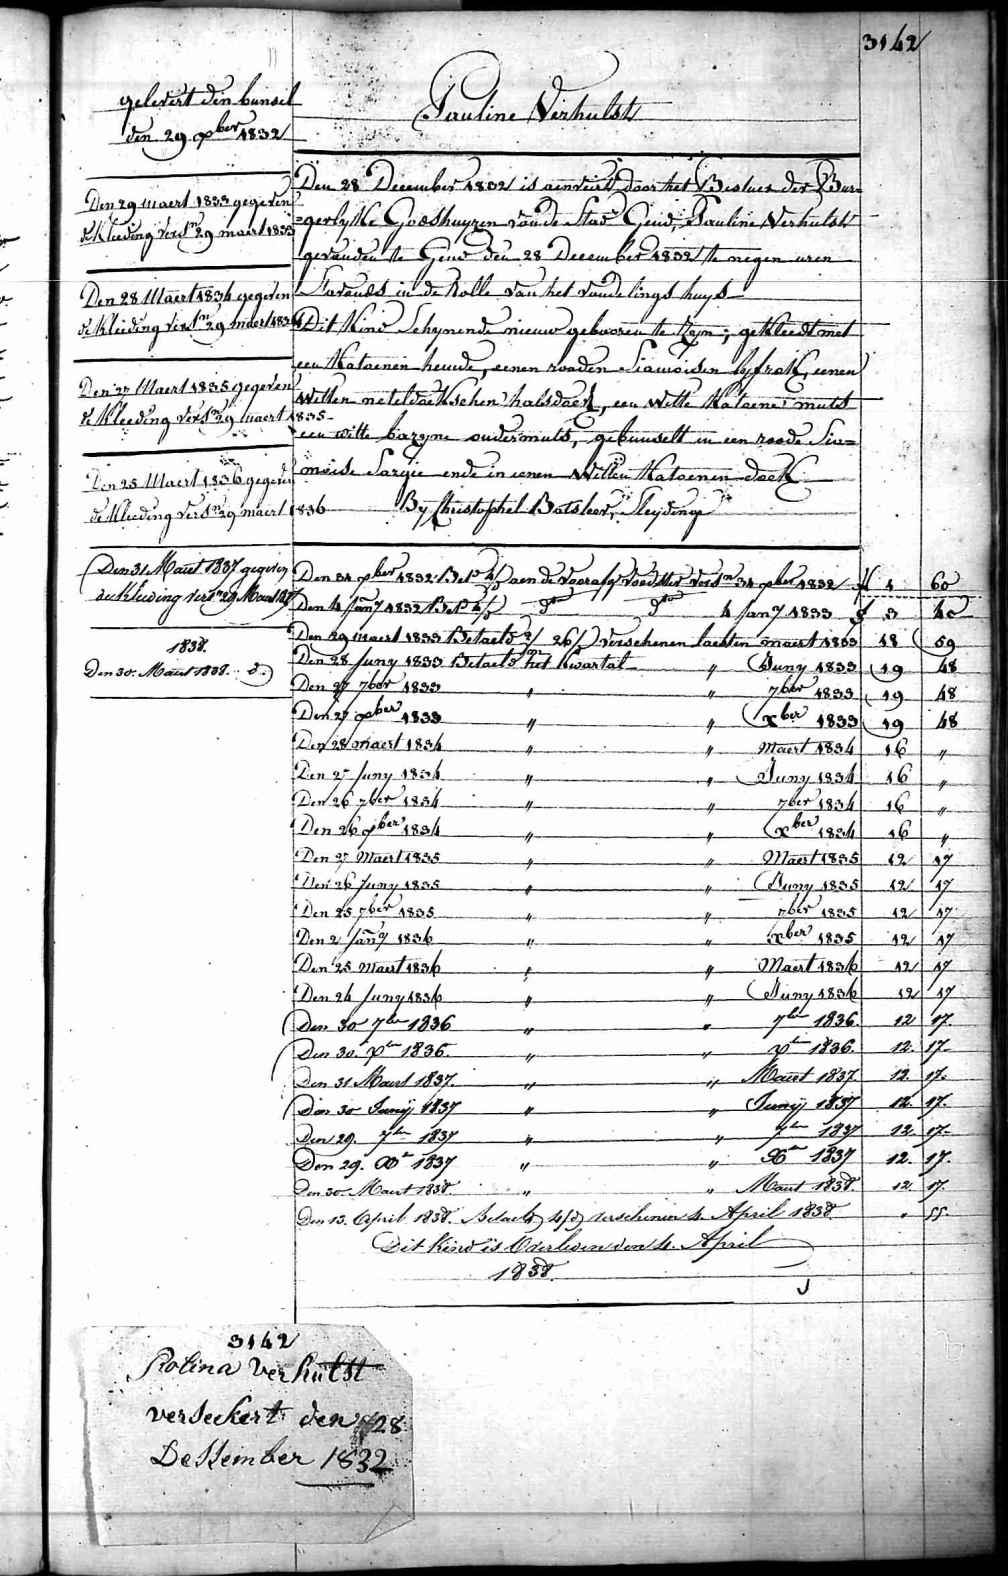 3142
gelevert den bunsel
den 29 xber 1832
Den 29 maert 1833 gegeven
de kleeding versn 29 maert 1833
Den 28 Maert 1834 gegeven
de kleeding versn 29 maert 1834
Den 27 Maert 1835 gegeven
de kleeding versn 29 maert 1835
Den 25 Maert 1836 gegeven
de kleeding versn 29 maert 1836
Den 31 Maert 1837 gegeven
de kleeding versn 29 Maert 1837
1838.
Den 30. Maert 1838. d.
Pauline Verhulst
Den 28 December 1832 is aenveird door het Bestuer der Bur=
=gerlijke Godshuyzen van de Stad Gend, Pauline Verhulst
gevonden te Gend den 28 December 1832 te negen uren
S'avonds in de Rolle van het vondelings huys
Dit Kind Schynende nieuw geboren te zyn; gekleedt met
een Katoenen hemde, eenen rooden Siamoisen lyfrok, eenen
witten neteldoekschen halsdoek, een witte Katoene muts
een witte bazyne ondermuts, gebunselt in een roode Sia=
moise Sargie ende in eenen Witten Katoenen doek
By Christophel Botsleer, Sleydinge
Den 31 xber 1832 Betd 4/ aen de voorafg voedster versn 31 xber 1832 f 1 60
Den 4 Jany 1832 Betd 4/ do do 4 Jany 1833 f 3 40
Den 29 maert 1833 Betaeld 2/ 26/ verschenen laetsten maert 1833 18 59
Den 28 Juny 1833 Betaeld het Kwartal " Juny 1833 19 48
Den 27 7ber 1833 " " 7ber 1833 19 48
Den 27 xber 1833 " " xber 1833 19 48
Den 28 maert 1834 " " Maert 1834 16 "
Den 27 Juny 1834 " " Juny 1834 16 "
Den 26 7ber 1834 " " 7ber 1834 16 "
Den 26 xber 1834 " " xber 1834 16 "
Den 27 Maert 1835 " " Maert 1835 12 17
Den 26 Juny 1835 " " Juny 1835 12 17
Den 25 7ber 1835 " " 7ber 1835 12 17
Den 2 Jany 1836 " " xber 1835 12 17
Den 25 maert 1836 " " Maert 1836 12 17
Den 24 Juny 1836 " " Juny 1836 12 17
Den 30 7ber 1836 " " 7ber 1836. 12 17.
Den 30. xber 1836. " " xber 1836. 12. 17.
Den 31 Maert 1837. " " Maert 1837. 12. 17.
Den 30 Junij 1837 " " Junij 1837 12. 17.
Den 29. 7ber 1837 " " 7ber 1837 12. 17.
Den 29. Xber 1837 " " Xber 1837 12. 17.
Den 30. Maert 1838. " " Maert 1838. 12. 17.
Den 13. April 1838. Betaeld 4/d verschenen 4. April 1838. " 55.
Dit Kind is Overleden den 4. April
1838.
3142
Rolina Verhulst
verseckert den 28
Dessember 1832